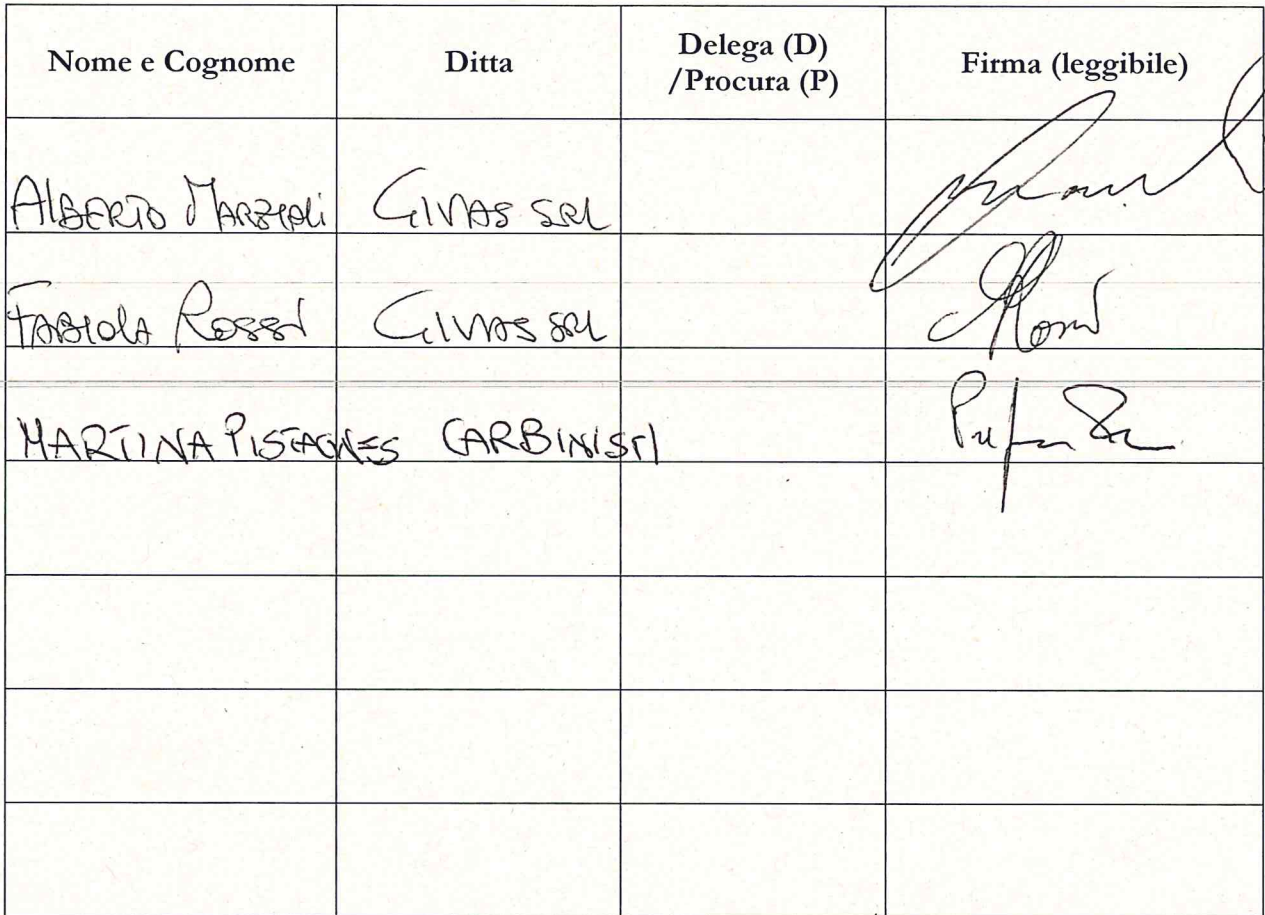 Nome e Cognome Ditta Delega (D) /Procura (P) Firma (leggibile)
Alberto Marziali Givas srl
Fabiola Rossi Givas srl
MARTINA PISTAGNES CARBINI srl